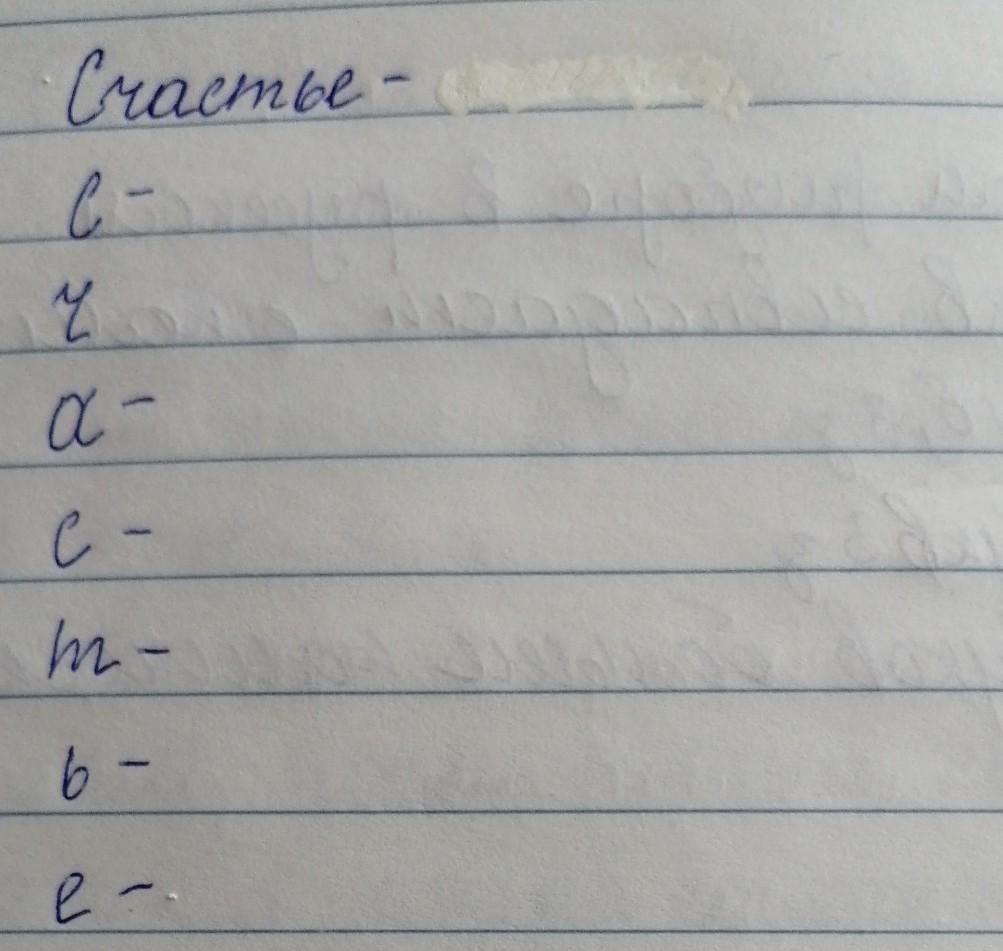 Счастье -
С -
ч
а -
с -
т -
ь -
е -